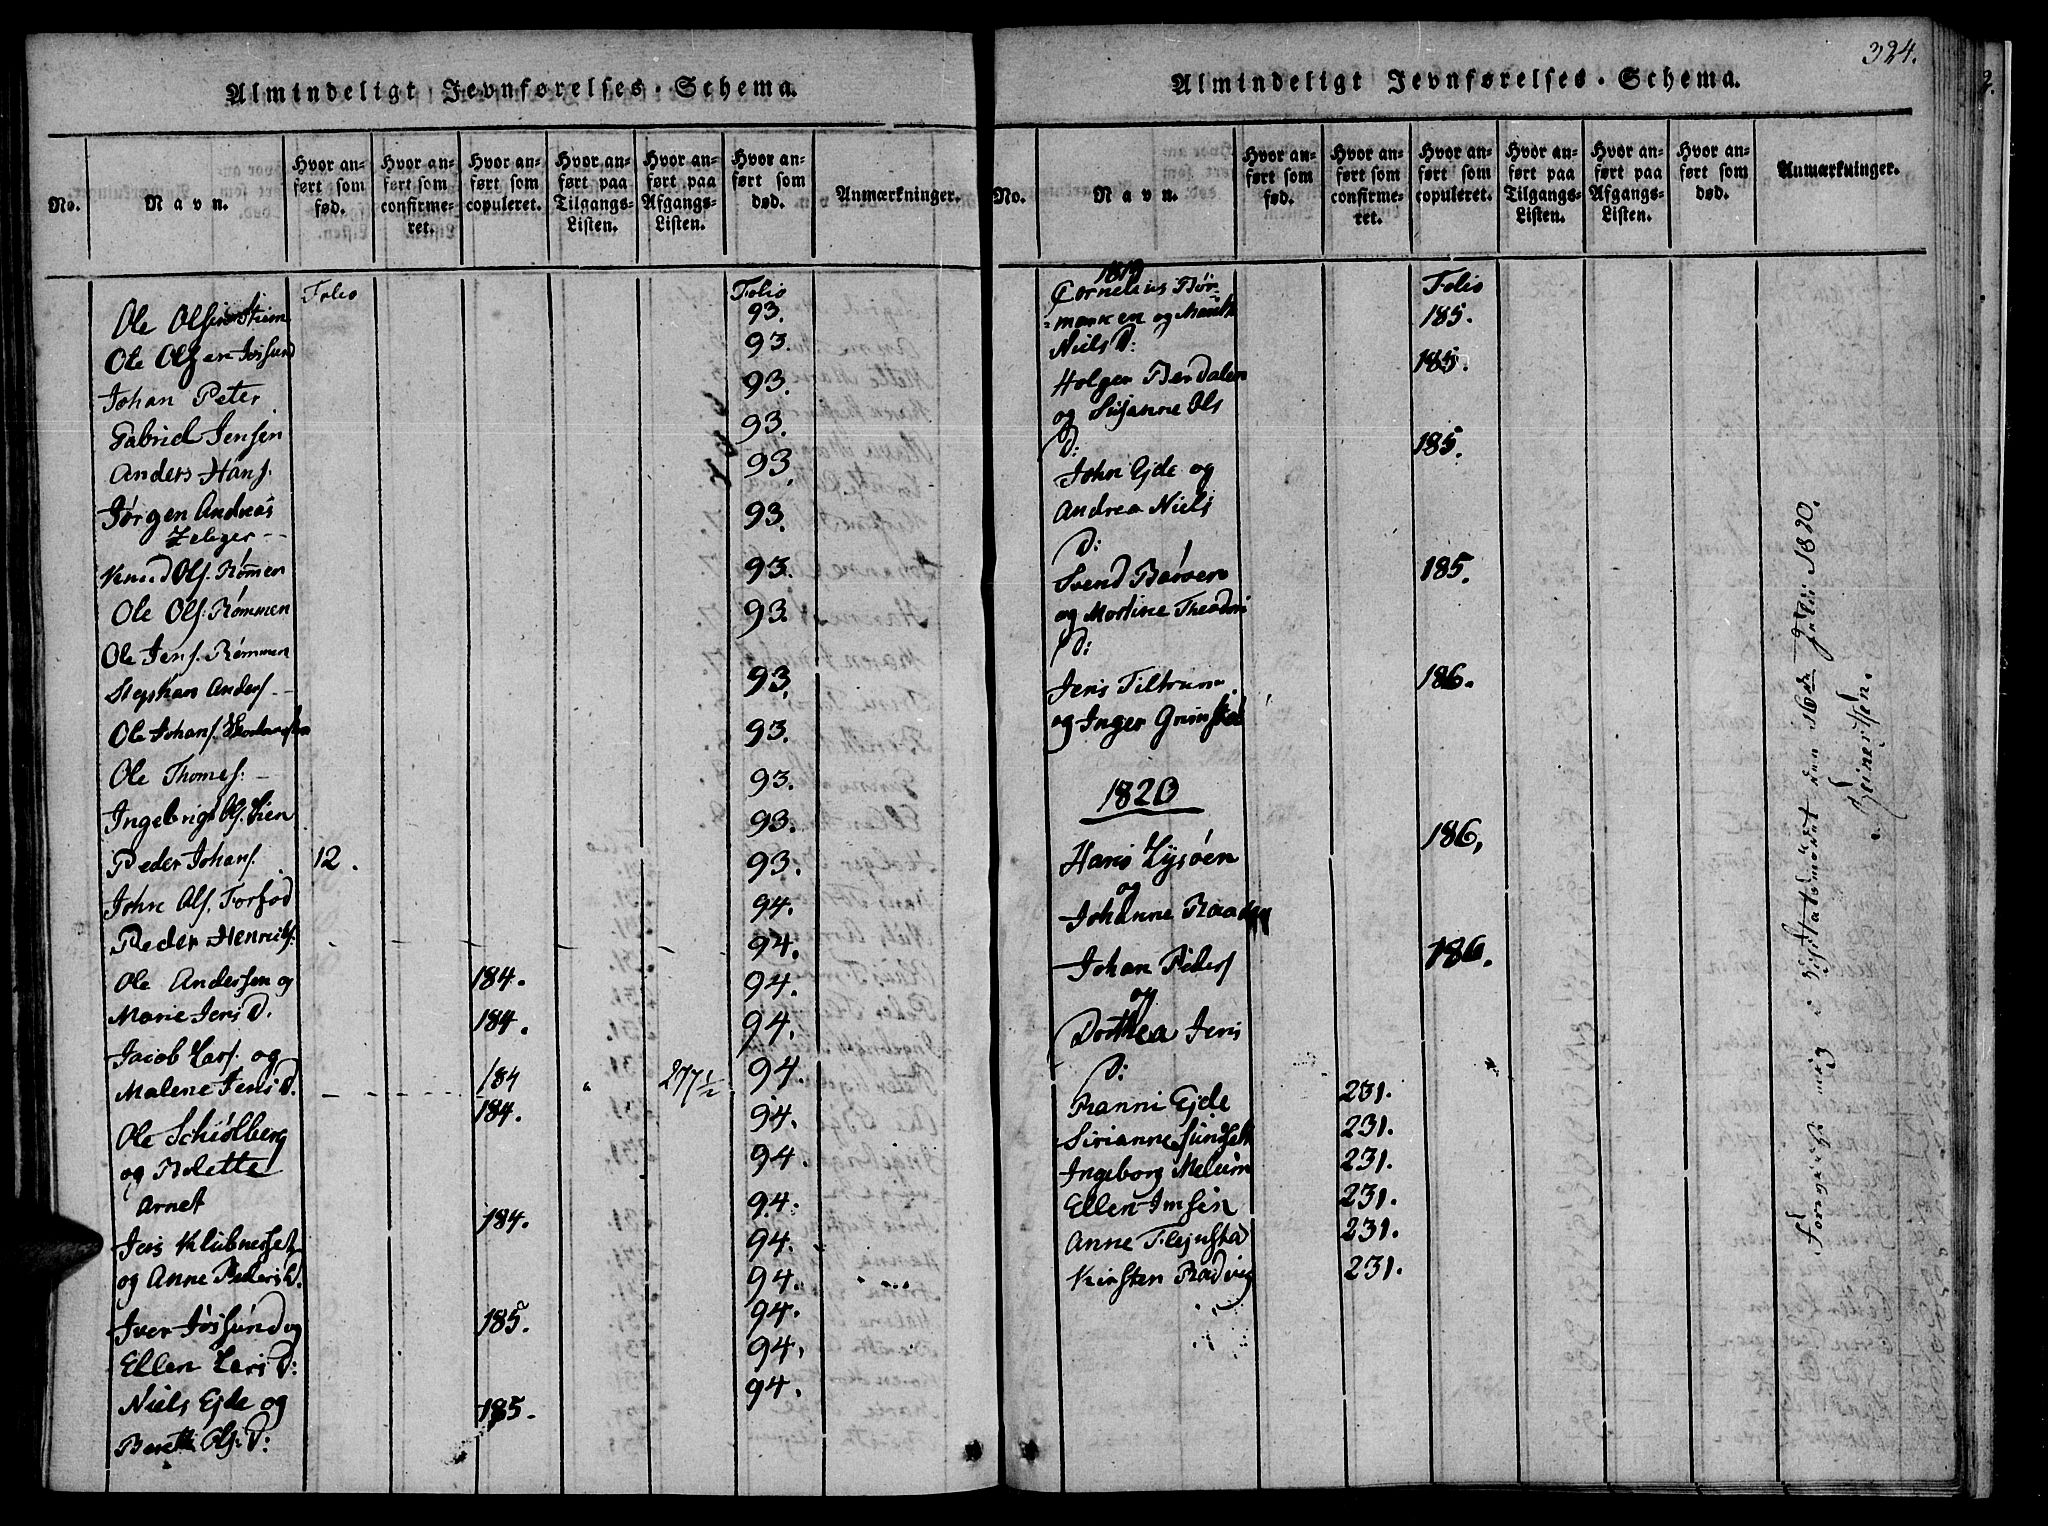 Almindeligt Jevnførelses-Schema.
No.
Navn.
Hvor anført som fød.
Hvor anført som confirmeret.
Hvor anført som copuleret.
Hvor anført paa Tilgangs-Listen.
Hvor anført paa Afgangs-Listen.
Hvor anført som død.
Anmærkninger.
Folio Folio
Ole Olsen 93.
Ole Olsen Jøssund 93.
Johan Peter 93.
Gabriel Jensen 93.
Anders Hans. 93.
Jørgen Andreas 93.
Zeleger --
Knud Ols. Rømmen 93.
Ole Ols. Rømmen 93.
Ole Jens. Rømmen
Stephan Anders. -- 93.
Ole Johans. 93.
Ole Thomes: - 93.
Ingebrigt Ols. Lien 93.
Peder Johans. 12. 93.
John Ols. 94.
Peder Henriks. 94.
Ole Andersen og 184. 94.
Marie Jens D. 184. 94.
Jacob Lars. og
Malene Jens D. 184 277½ 94.
Ole Schiølberg 184. 94.
og Bolette 94.
Arnet 94.
Jens Klubneset 184. 94.
og Anne Peders D. 94.
Iver Jøssund og 185. 94.
Ellen Lars D: 94.
Niels Ejde og 94.
Bereth Ols. D: 185.
324.
Almindeligt Jevnførelses-Schema.
No.
Navn.
Hvor anført som fød.
Hvor anført som confirmeret.
Hvor anført som copuleret.
Hvor anført paa Tilgangs-Listen.
Hvor anført paa Afgangs-Listen.
Hvor anført som død.
Anmærkninger.
1819
Cornelius Folio
og 185.
Niels D:
Holger Berdalen 185.
og Susanne Ols
D:
John Ejde og 185.
Andrea Niels
D:
Svend 185.
og Martine
D:
Jens Tiltrum 186.
og Inger Grimstad
1820
Hans Lysøen 186,
og
Johanne
Johan Peders 186.
og
Dorthea Jens
D:
Ranni Ejde 231.
Sirianne 231.
Ingeborg Melum 231.
Ellen 231.
Anne 231.
Kirsten Rodvig 231.
mig i Visitatsmødet den 16de Julii 1820.